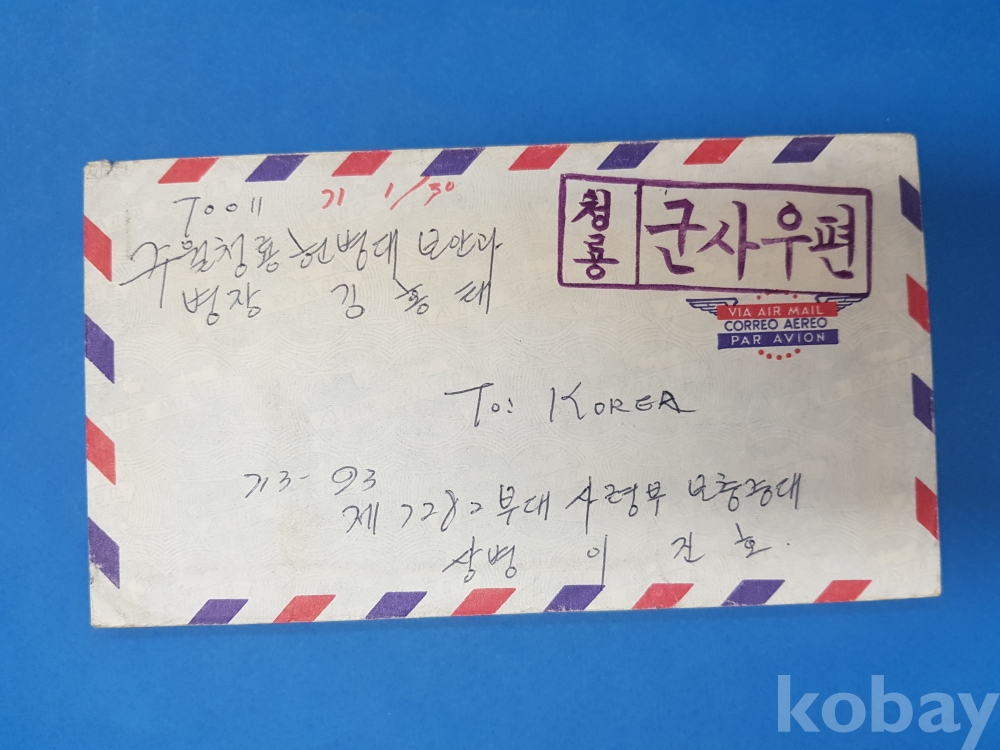 71 1/30
주월청룡 헌병대 보안과
병장 김홍태
청룡
군사우편
VIA AIR MAIL
CORREO AEREO
PAR AVION
To: KOREA
713-93
제 7282 부대 사령부 보충중대
상병 이진호.
kobay